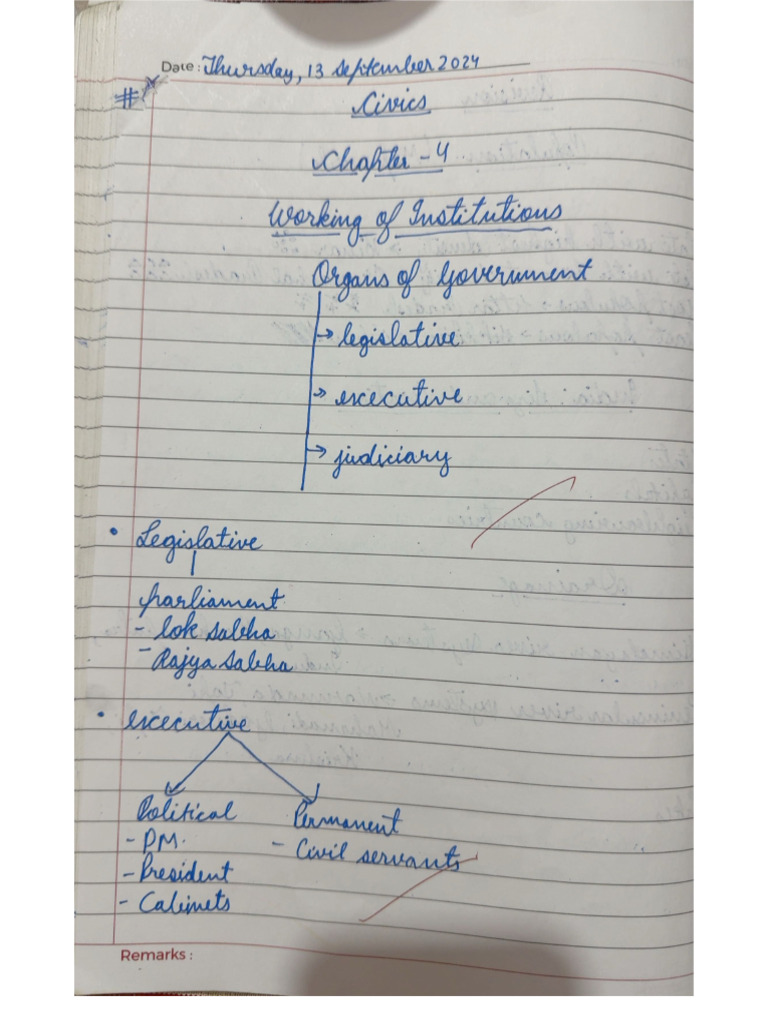 Date: Thursday, 13 September 2024
#
Civics
Chapter - 4
Working of Institutions
Organs of Government
→ legislative
→ executive
→ judiciary
• Legislative
parliament
- lok sabha
- Rajya sabha
• executive
Political Permanent
- PM. - Civil servants
- President
- Cabinets
Remarks :